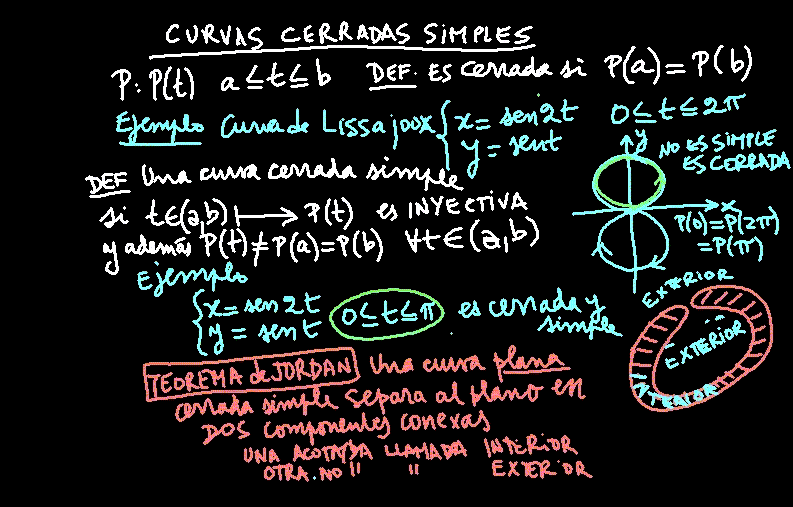 CURVAS CERRADAS SIMPLES
P: P(t) a ≤ t ≤ b DEF. ES cerrada si P(a) = P(b)
Ejemplo Curva de Lissajoux { x = sen 2t 0 ≤ t ≤ 2π
y = sent
y NO ES SIMPLE
ES CERRADA
DEF Una curva cerrada simple
si t∈(a,b) ↦ P(t) es INYECTIVA
y además P(t) ≠ P(a) = P(b) ∀t ∈ (a,b)
x
P(0) = P(2π)
= P(π)
Ejemplo
{ x = sen 2t 0 ≤ t ≤ π es cerrada y
y = sent simple
EXTERIOR
EXTERIOR
INTERIOR
TEOREMA de JORDAN Una curva plana
cerrada simple separa al plano en
DOS componentes conexas
UNA ACOTADA LLAMADA INTERIOR
OTRA. NO " " EXTERIOR